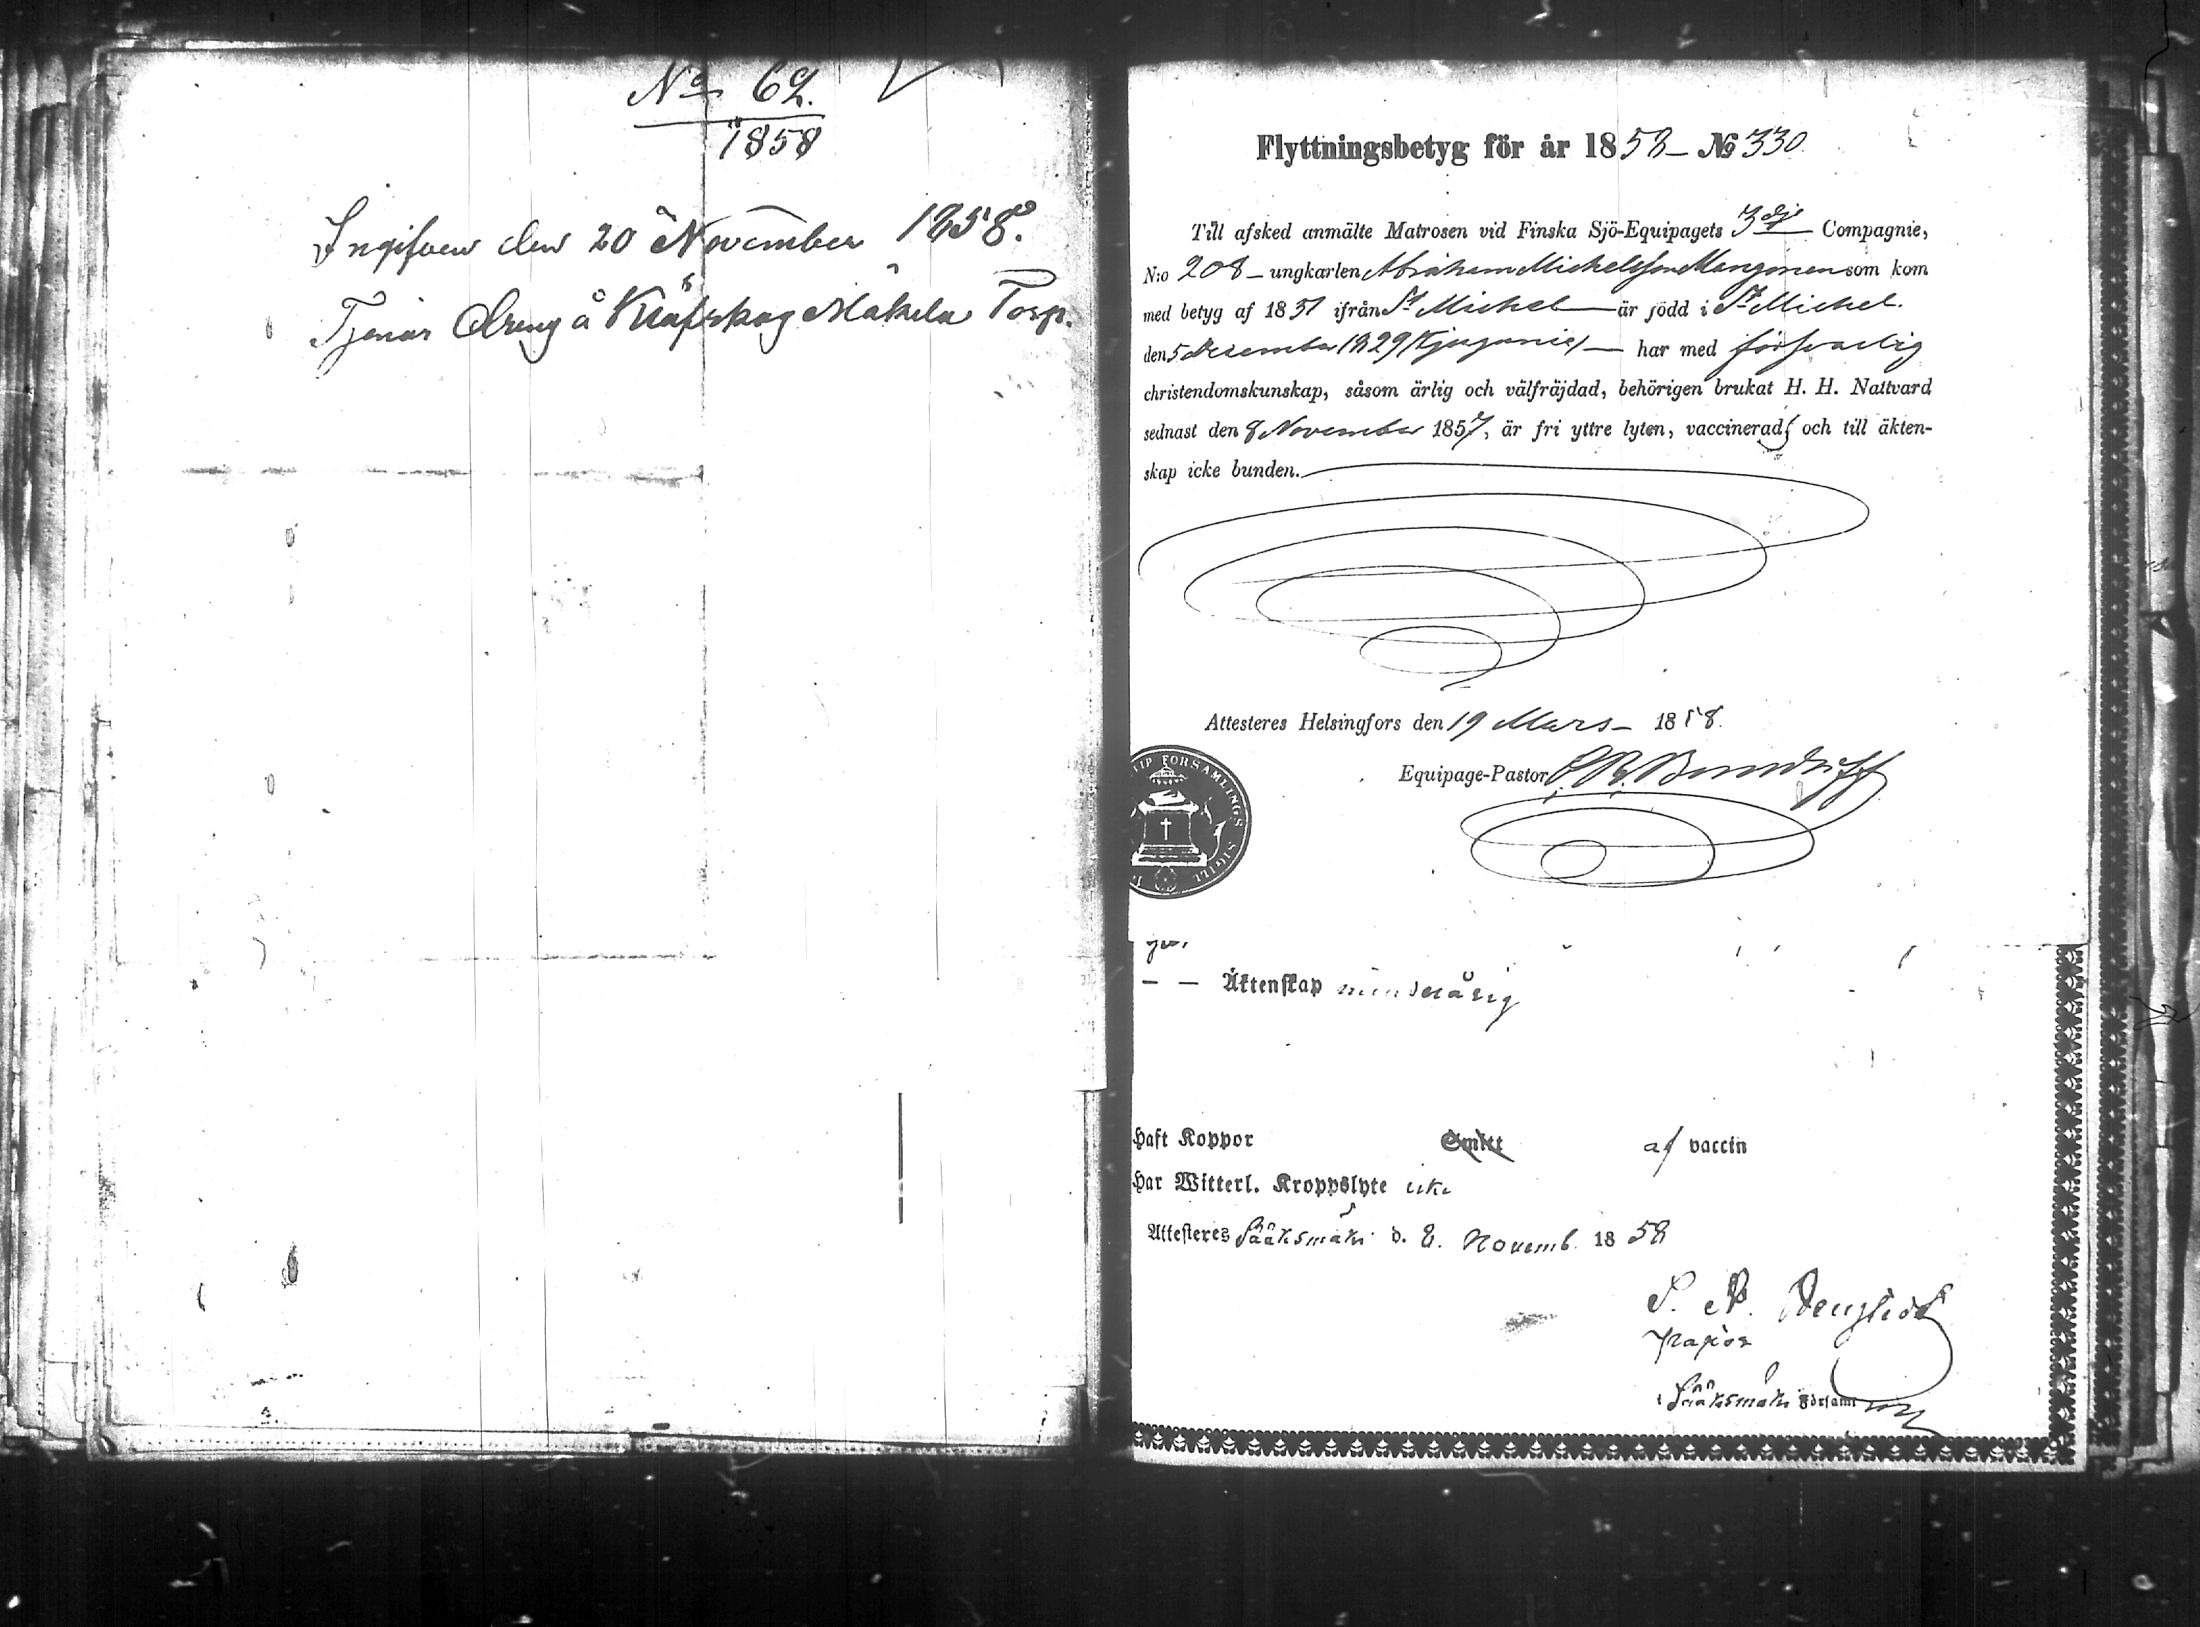 No 62.
1858
Ingifven den 20 November 1858.
Tjenar Dreng å Mäkelä Torp.
Flyttningsbetyg för år 1858 – No 330
Till afsked anmälte Matrosen vid Finska Sjö-Equipagets 3dje Compagnie,
N:o 208 – ungkarlen Abraham Michelsson Mangonen som kom
med betyg af 1851 ifrån St Michel är född i St Michel.
den 5 December 1829 har med försvarlig
christendomskunskap, såsom ärlig och välfräjdad, behörigen brukat H. H. Nattvard
sednast den 8 November 1857, är fri yttre lyten, vaccinerad, och till äkten-
skap icke bunden.
Attesteres Helsingfors den 19 Mars – 1858.
Equipage-Pastor
FÖRSAMLINGS SIGILL
— — Äktenskap minderårig
Haft Koppor Smitt af vaccin
Har Witterl. Kroppslyte icke
Attesteres Sääksmäki d. 8. Novemb. 1858
i Sääksmäki Församl